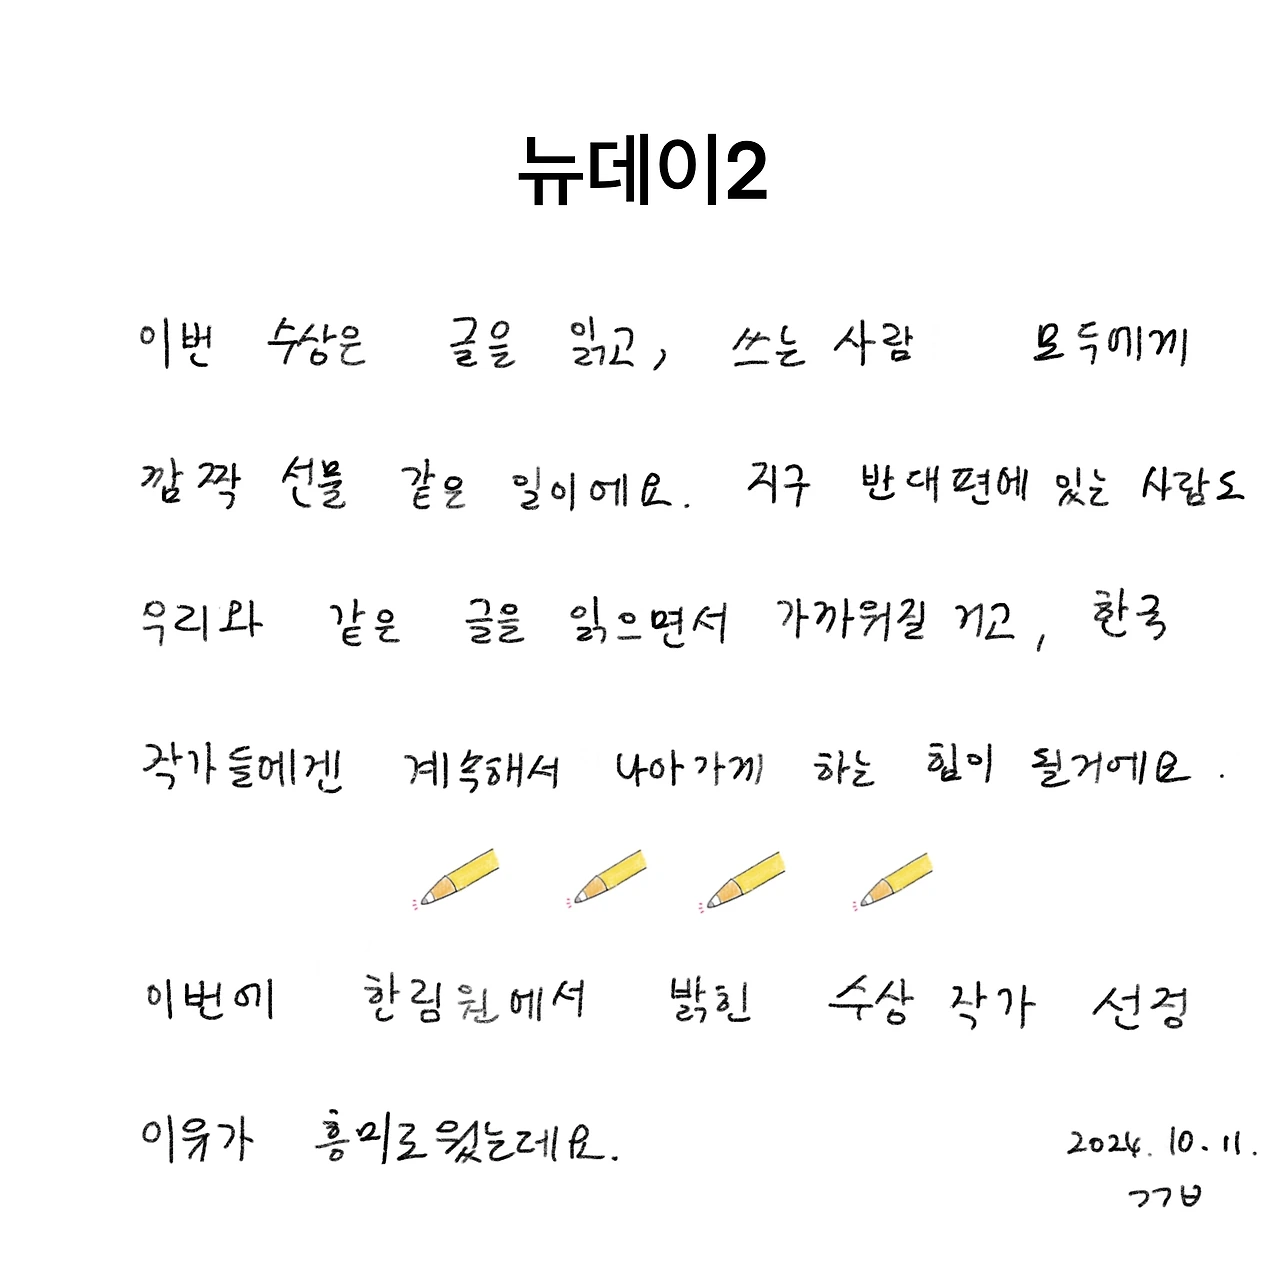 뉴데이2
이번 수상은 글을 읽고, 쓰는 사람 모두에게
깜짝 선물 같은 일이에요. 지구 반대편에 있는 사람도
우리와 같은 글을 읽으면서 가까워질 거고, 한국
작가들에겐 계속해서 나아가게 하는 힘이 될거에요.
이번에 한림원에서 밝힌 수상 작가 선정
이유가 흥미로웠는데요.
2024. 10. 11.
ㄱㄱㅂ